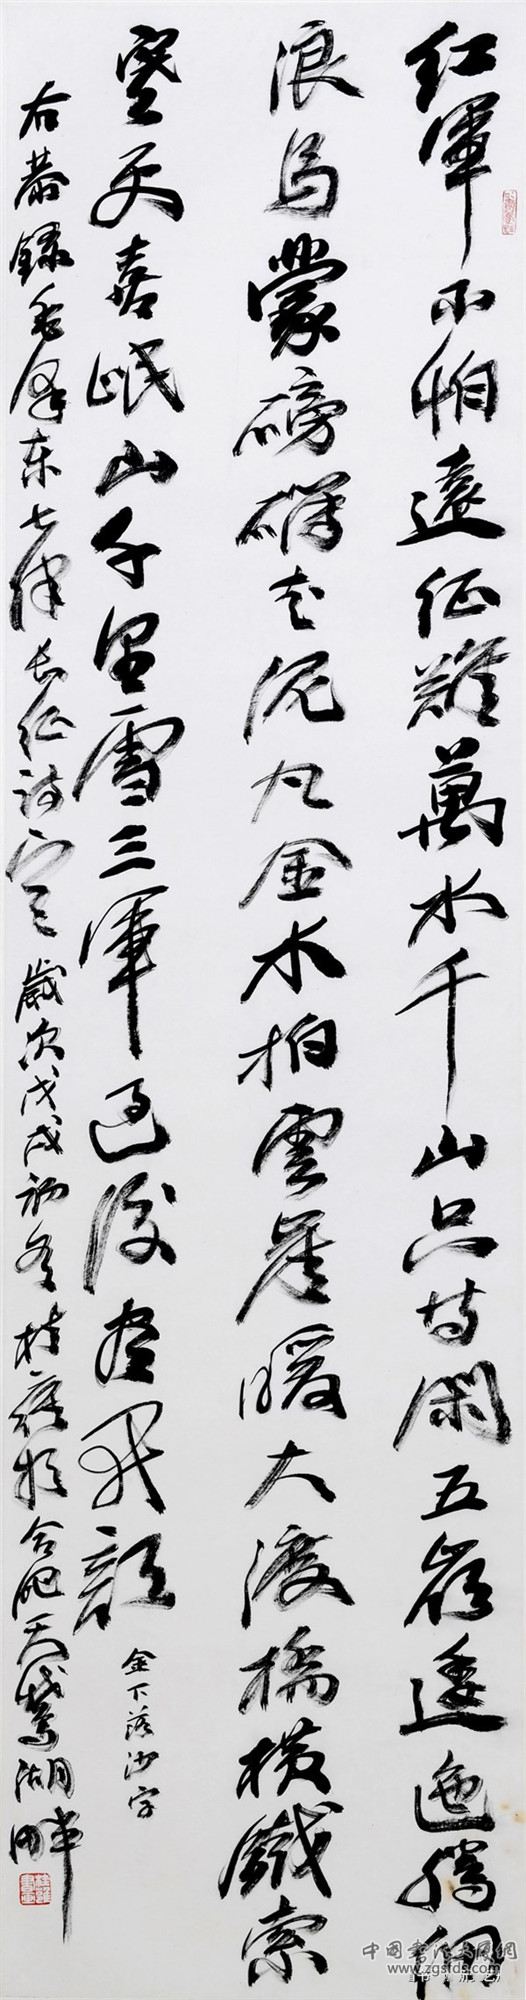 紅軍不怕遠征難萬水千山只等閑五嶺逶迤騰細
浪烏蒙磅礴走泥丸金水拍雲崖暖大渡橋横鐵索
寒更喜岷山千里雪三軍過後盡開顔
金下落沙字
右恭録毛澤東七律長征詩 歲次戊戌初冬桂雍於合肥天鵞湖畔
中國書法大赛网
www.zgsfds.com